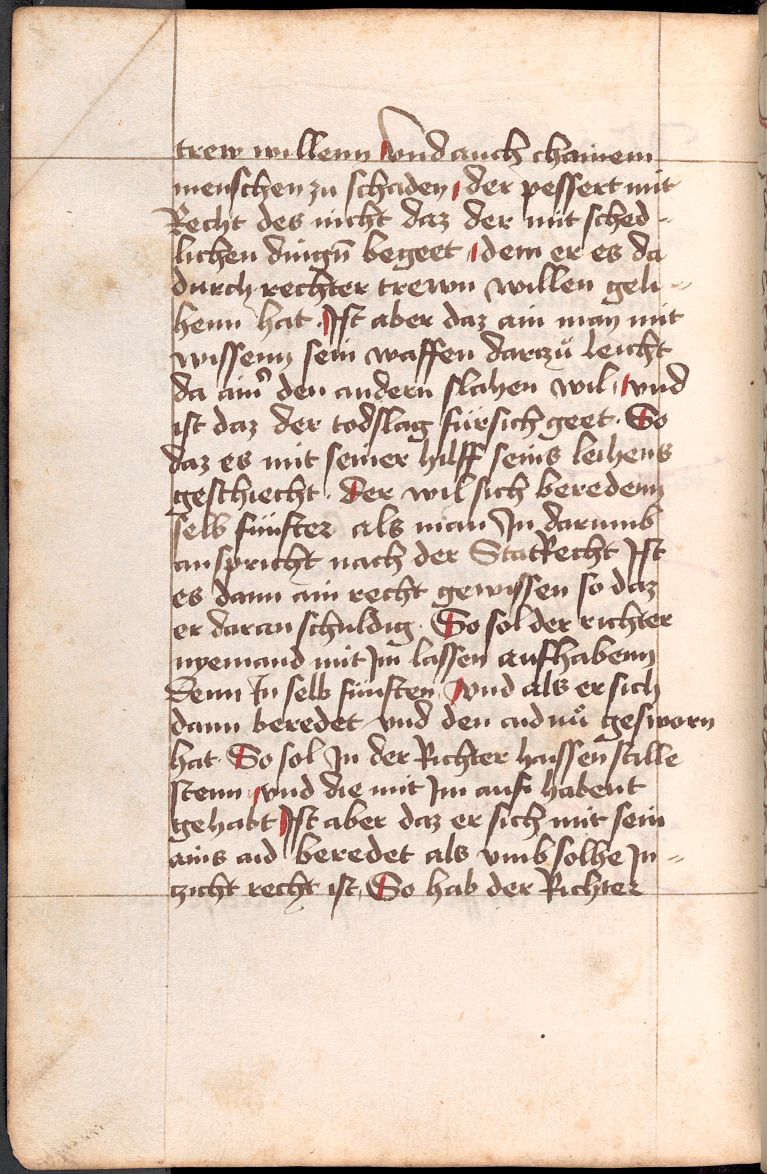 trew willenn vnd auch chainem
menschen zu schaden der pessert mit
Recht des nicht daz der mit sched-
lichen dingn̄ begeet dem er es da
durch rechter trewn willen geli-
henn hat. Ist aber daz ain man mit
wissenn sein waffen darzů leicht
da ainˀ den andern slahen wil vnd
ist daz der todslag fürsich geet. So
daz es mit seiner hilff seins leihens
geschiecht. Der wil sich beredenn
selb fünfter als man In darumb
anspricht nach der StatRecht Ist
es dann ain recht gewissen so daz
er daran schuldig. So sol der richter
nyemand mit Im lassen aufhabenn
Denn In selb fünften vnd als er sich
dann beredet vnd den aid nů gesworn
hat. So sol In der Richter haissen stille
stenn vnd die mit Im auf habent
gehabt Ist aber daz er sich mit sein
ains aid beredet als vmb solhe In-
zicht recht ist. So hab der Richter